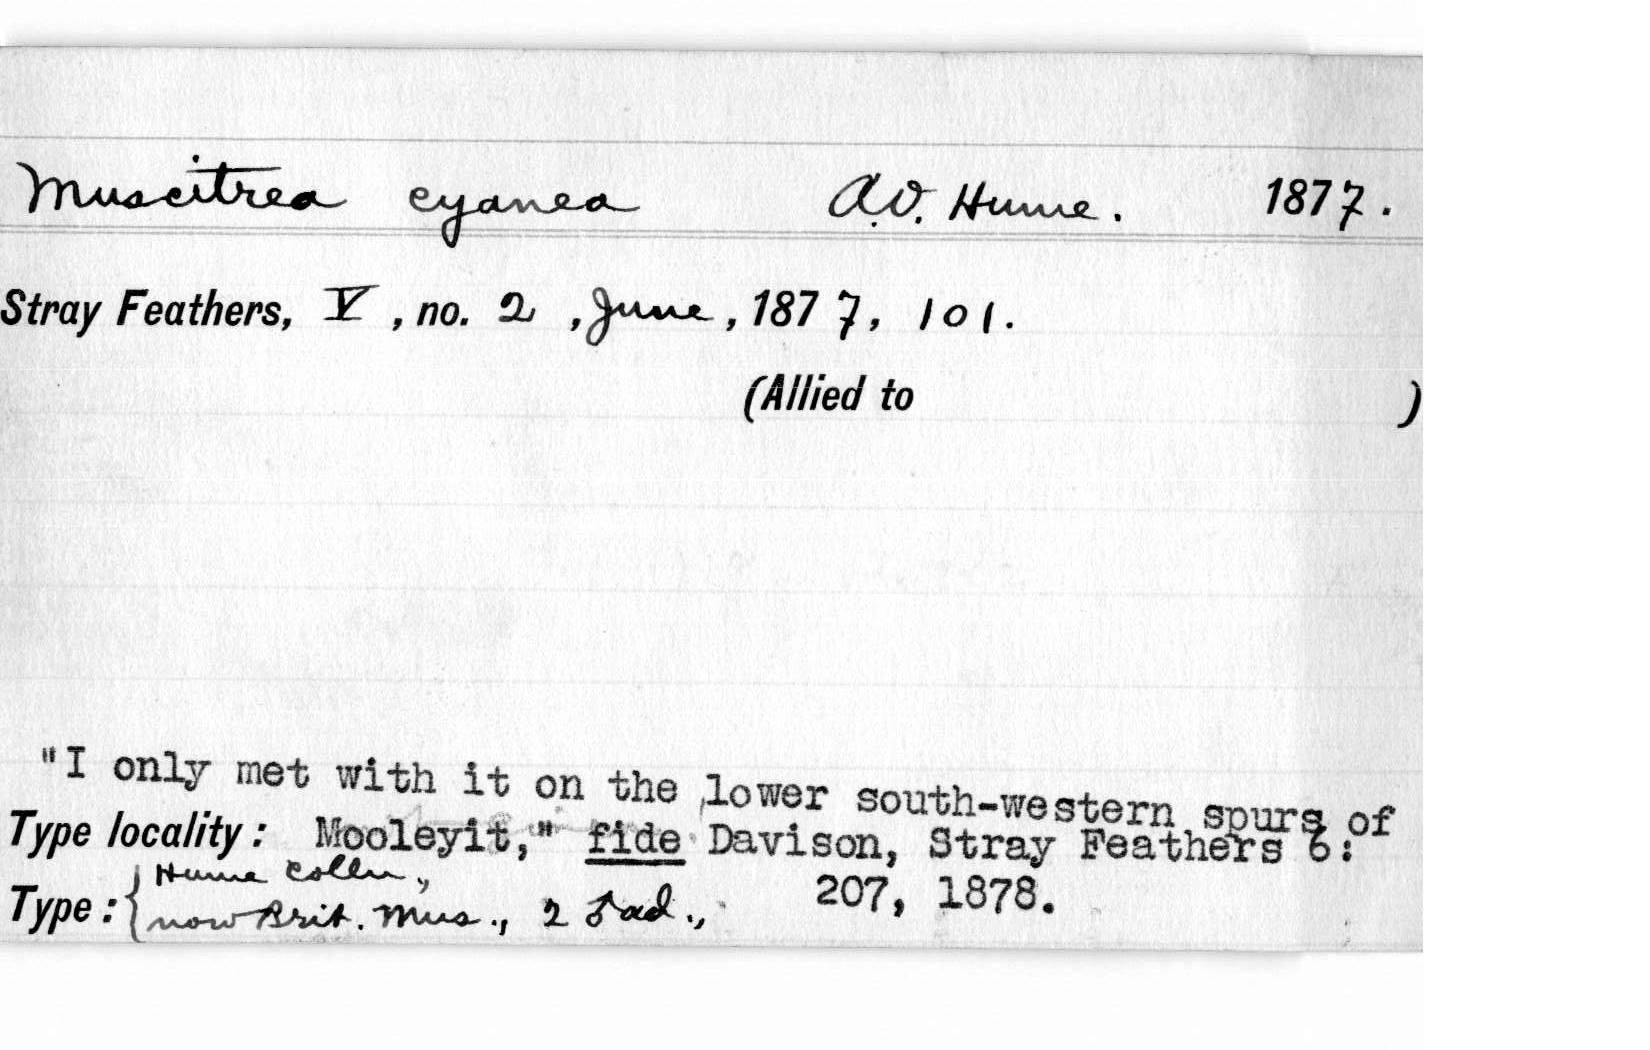 Muscitrea cyanea A.O. Hume. 1877.
Stray Feathers, V, no. 2, June, 1877, 101.
(Allied to )
"I only met with it on the lower south-western spurs of
Type locality: Mooleyit," fide Davison, Stray Feathers 6:
207, 1878.
Type: { Hume Colln.,
now Brit. Mus., 2 ♂ ad.,